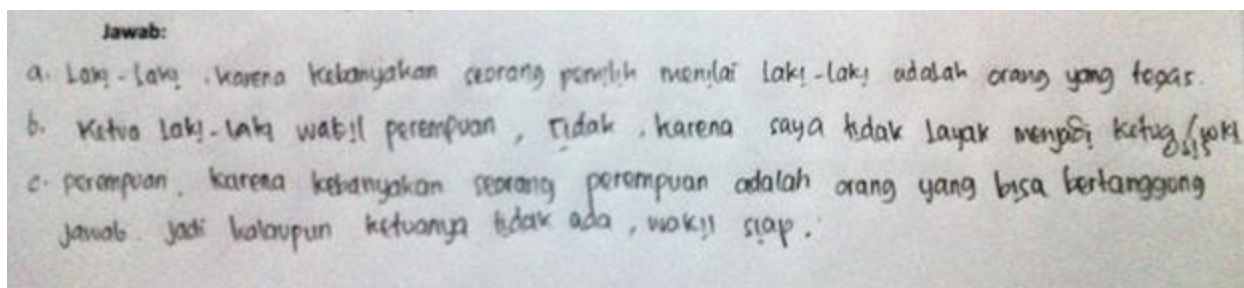 Jawab:
a. Laki-Laki, karena kebanyakan seorang pemilih menilai laki-laki adalah orang yang tegas.
b. Ketua laki-laki wakil perempuan, Tidak, karena saya tidak layak menjadi ketua / osis
c. perempuan, karena kebanyakan seorang perempuan adalah orang yang bisa bertanggung
jawab. jadi kalaupun ketuanya tidak ada, wakil siap.